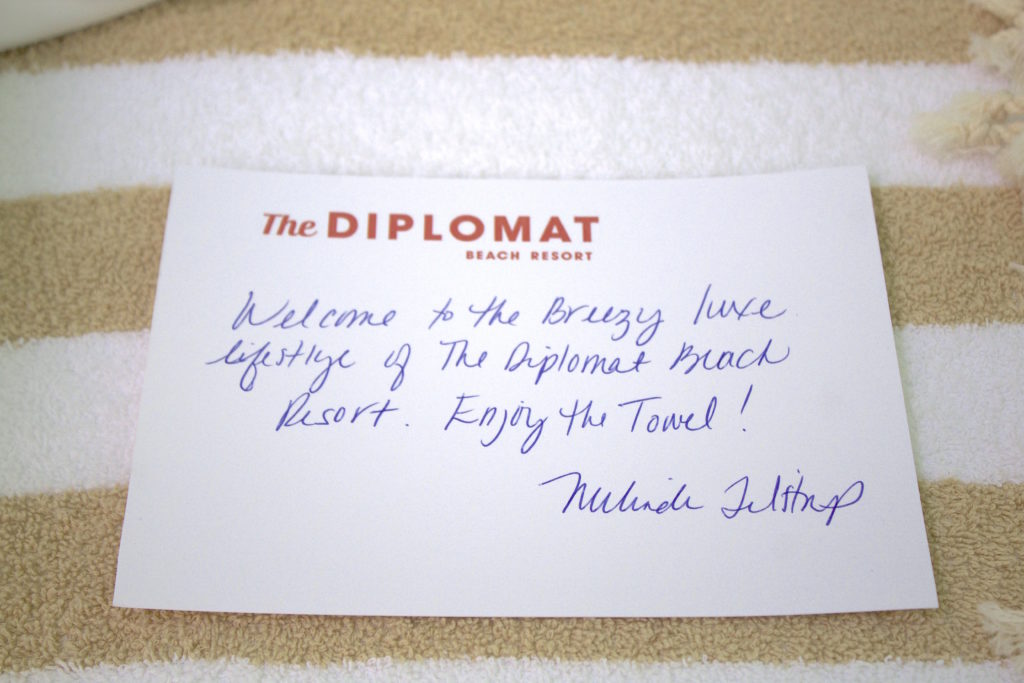 The DIPLOMAT
BEACH RESORT
Welcome to the Breezy luxe
lifestlye of The Diplomat Beach
Resort. Enjoy the Towel!
Melinda